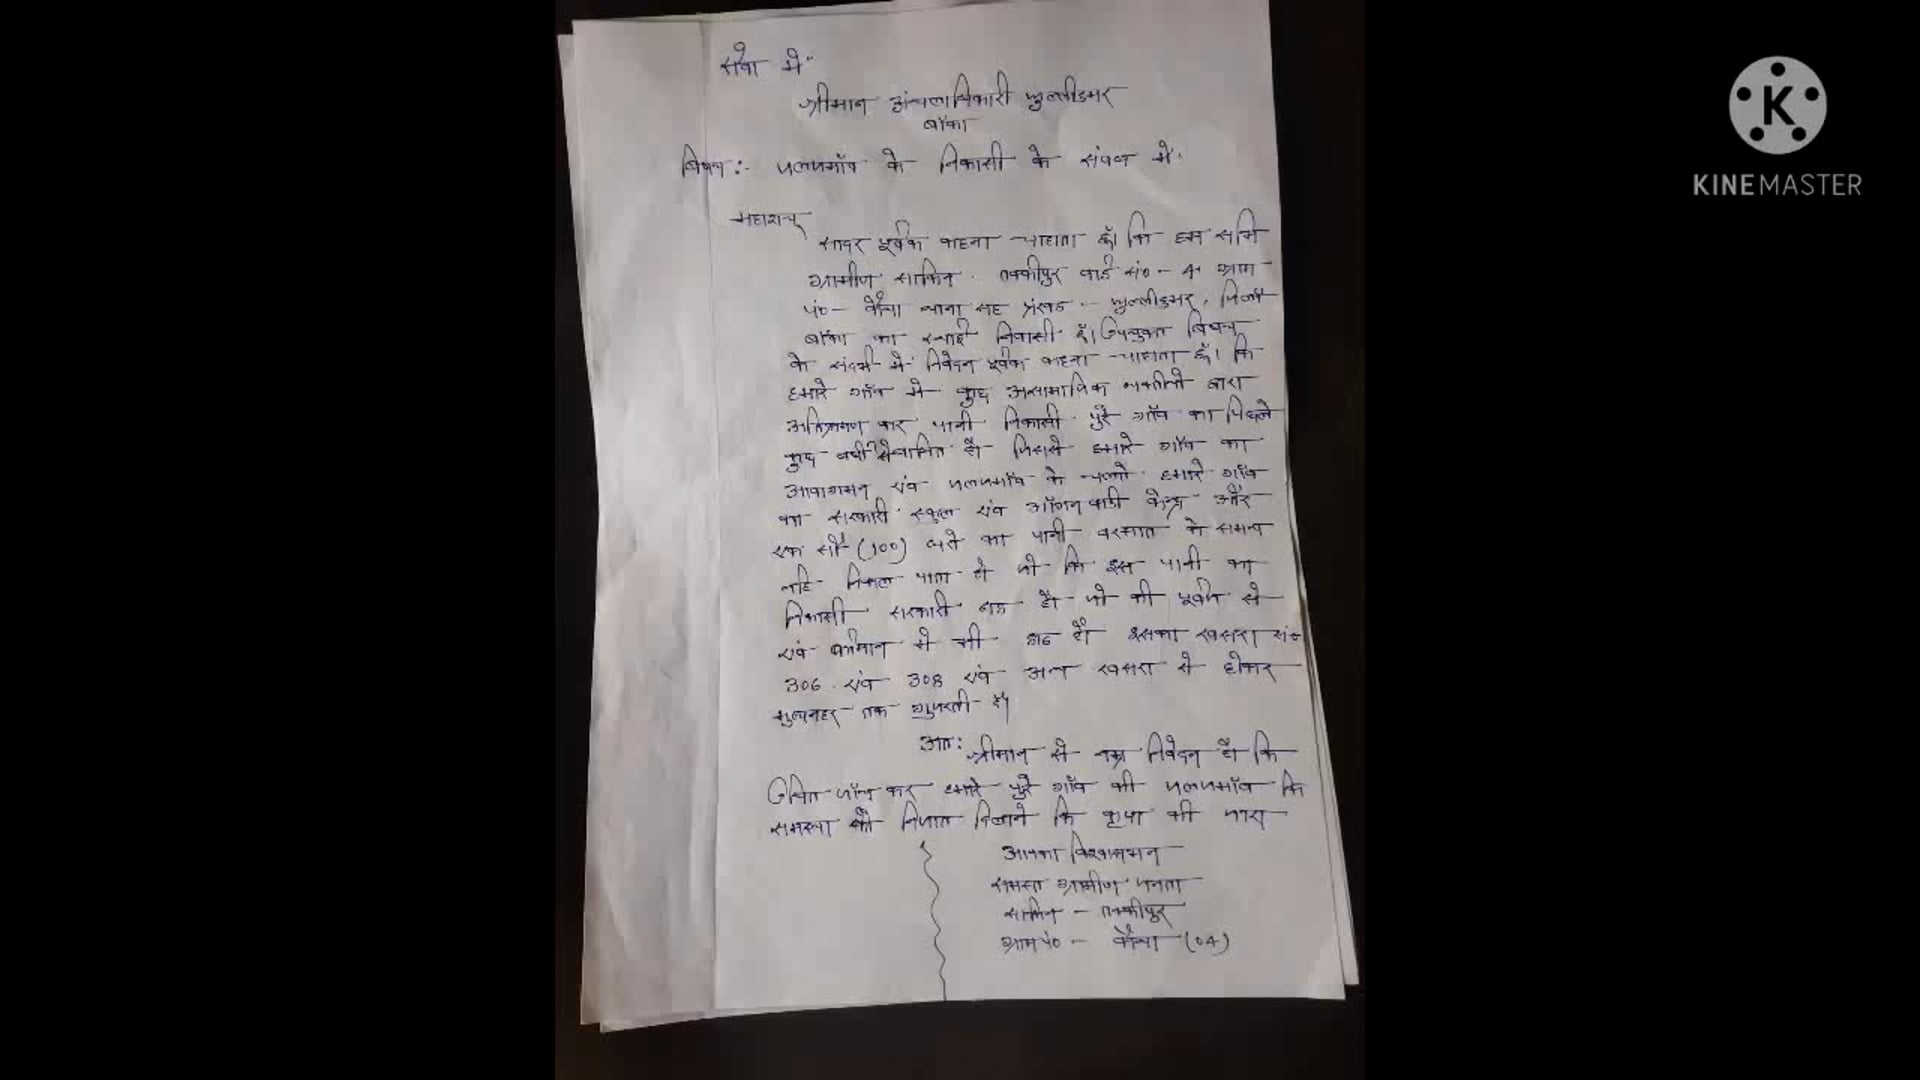 सेवा में
श्रीमान अंचलाधिकारी फुल्लीडुमर
बाँका
विषय:- जलजमाँव के निकासी के संबंध में.
महाशय
सादर पूर्वक कहना चाहाता हूँ। कि हम सभि
ग्रामीण साकिन तक्कीपुर वार्ड सं० - 4 ग्राम
पं० - कैंचा थाना सह प्रंखड - फुल्लीडुमर, जिला
बाँका का स्थाई निवासी हूँ। उपयुक्त बिषय
के संदर्भ में निवेदन पूर्वक कहना चाहाता हूँ। कि
हमारे गाँव में कुछ असामाजिक व्यक्तीयो द्वारा
अतिक्रमण कर पानी निकासी पुरे गाँव का पिछले
कुछ वर्षो से बाधित है जिससे हमारे गाँव का
आवागमन एंव जलजमाँव के चलते हमारे गाँव
का सरकारी स्कुल एंव आँगनवाडी केन्द्र और
एक सौ (100) घरो का पानी बरसात के समय
नहि निकल पाता है जो कि इस पानी का
निकासी सरकारी है जो की पूर्वज से
एंव वर्तमान में भी है इसका खसरा सं०
306 एंव 308 एंव अन्य खसरा से होकर
तक गुजरती है।
अतः श्रीमान से नम्र निवेदन है कि
उचित जाँच कर हमारे पुरे गाँव की जलजमाँव कि
समस्या को निजात दिलाने कि कृपा की जाए
आपका विश्वासभजन
समस्त ग्रामीण जनता
साकिन - तक्कीपुर
ग्राम पं० - कैंचा (04)
KINEMASTER